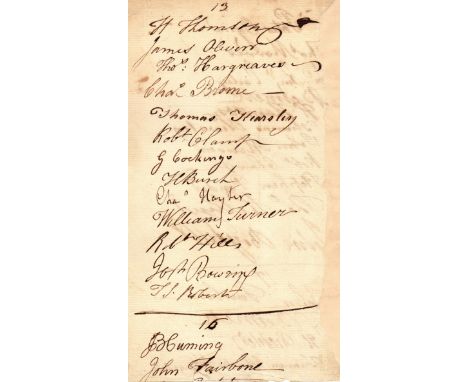 13
H Thomson
James Oliver
Thos: Hargreaves
Chas Brome
Thomas Hearsley
Robt Clamp
G Cockings
H Birch
Chas Hayter
William Turner
Robt Hills
Josh
T.S. Roberts
16
J B Cuming
John Fairbone